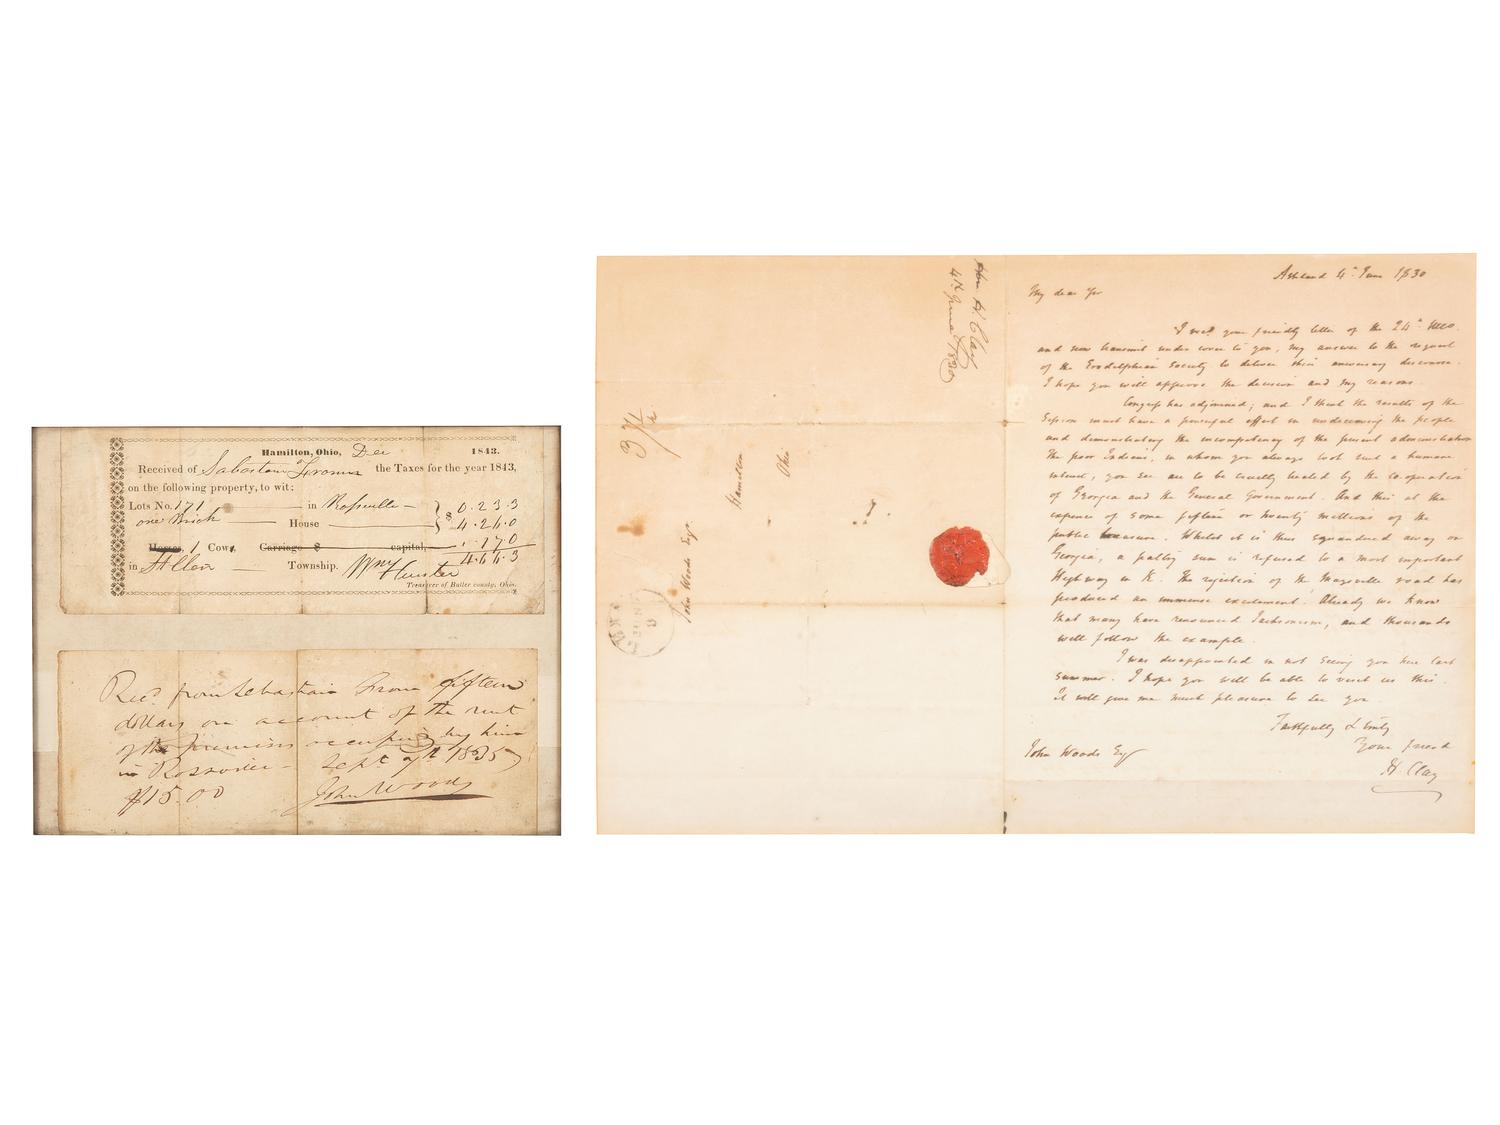 Hamilton, Ohio, Dec 1843.
Received of Sabastain the Taxes for the year 1843,
on the following property, to wit:
Lots No. 171 in Rossville $ 0.23.3
one Brick House 4.26.0
Horses, 1 Cows, Carriage & capital, 17.0
in St Clair Township. 4.66.3
Wm Hunter
Treasurer of Butler county, Ohio.
Recd. from Sebastain fifteen
dollars on account of the rent
of the premises occupied by him
in Rossville Sept 7th 1835
$15.00 John Woods
Hon H. Clay
4th June 1830
37½
John Woods Esqr.
Hamilton
Ohio
JUN 6
Ashland 4th June 1830
My dear Sir
I recd. your friendly letter of the 24th Ulto.
and now transmit under cover to you, my answer to the request
of the Erodelphian Society to deliver their anniversary discourse.
I hope you will approve the decision and my reasons.
Congress has adjourned; and I think the results of the
Session must have a powerful effect in undeceiving the people
and demonstrating the incompetency of the present administration
The poor Indians, in whom you always took such a humane
interest, you see are to be cruelly treated by the cooperation
of Georgia and the General Government. And this at the
expence of some fifteen or twenty millions of the
public treasure. Whilst it is thus squandered away on
Georgia, a paltry sum is refused to a most important
Highway in K. The rejection of the Maysville road has
produced an immense excitement. Already we know
that many have renounced Jacksonism, and thousands
will follow the example.
I was disappointed in not seeing you here last
summer. I hope you will be able to visit us this.
It will give me much pleasure to see you.
Faithfully & truly
Your friend
H. Clay
John Woods Esq